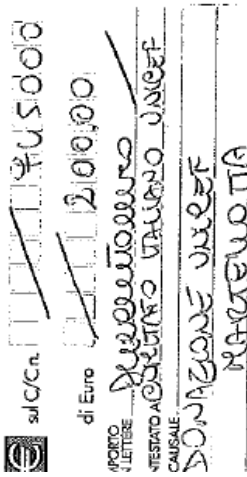 sul C/C n. 745000
di Euro 200,00
IMPORTO
IN LETTERE Duecento/00
INTESTATO A COMITATO ITALIANO UNICEF
CAUSALE
DONAZIONE UNICEF
MARTELLOTTA